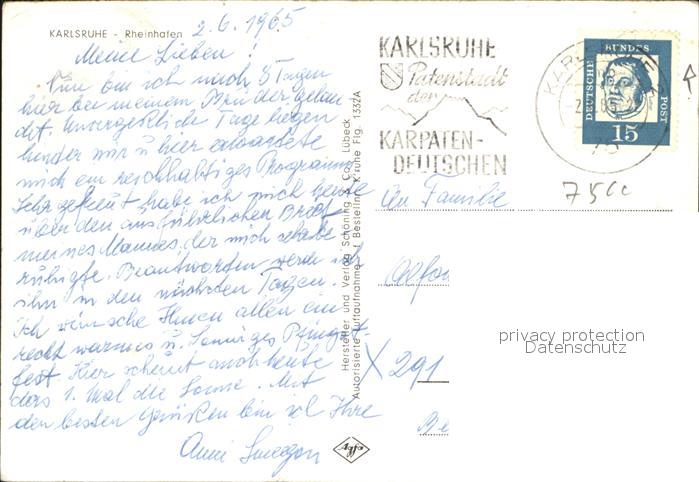 KARLSRUHE - Rheinhafen
2.6.1965
Meine Lieben!
Nun bin ich nach 5 Tagen
hier bei meinem Bruder gelan-
det. Unvergeßliche Tage liegen
hinter mir u hier erwartete
mich ein reichhaltiges Programm
Sehr gefreut habe ich mich heute
über den ausführlichen Brief
meines Mannes, der mich sehr be
ruhigte. Beantworten werde ich
ihn in den nächsten Tagen.
Ich wünsche Ihnen allen ein
recht warmes u. sonniges Pfingst-
fest. Hier scheint auch heute
das 1. Mal die Sonne. Mit
den besten Grüßen bin ich Ihre
Anni
Hersteller und Verlag Schöning & Co., Lübeck
Autorisierte Luftaufnahme f Bestellnr. K'ruhe Flg. 1332A
Agfa
KARLSRUHE
Patenstadt
der
KARPATEN-
DEUTSCHEN
DEUTSCHE
BUNDES
POST
15
75
An Familie
X 291
Be
privacy protection
Datenschutz